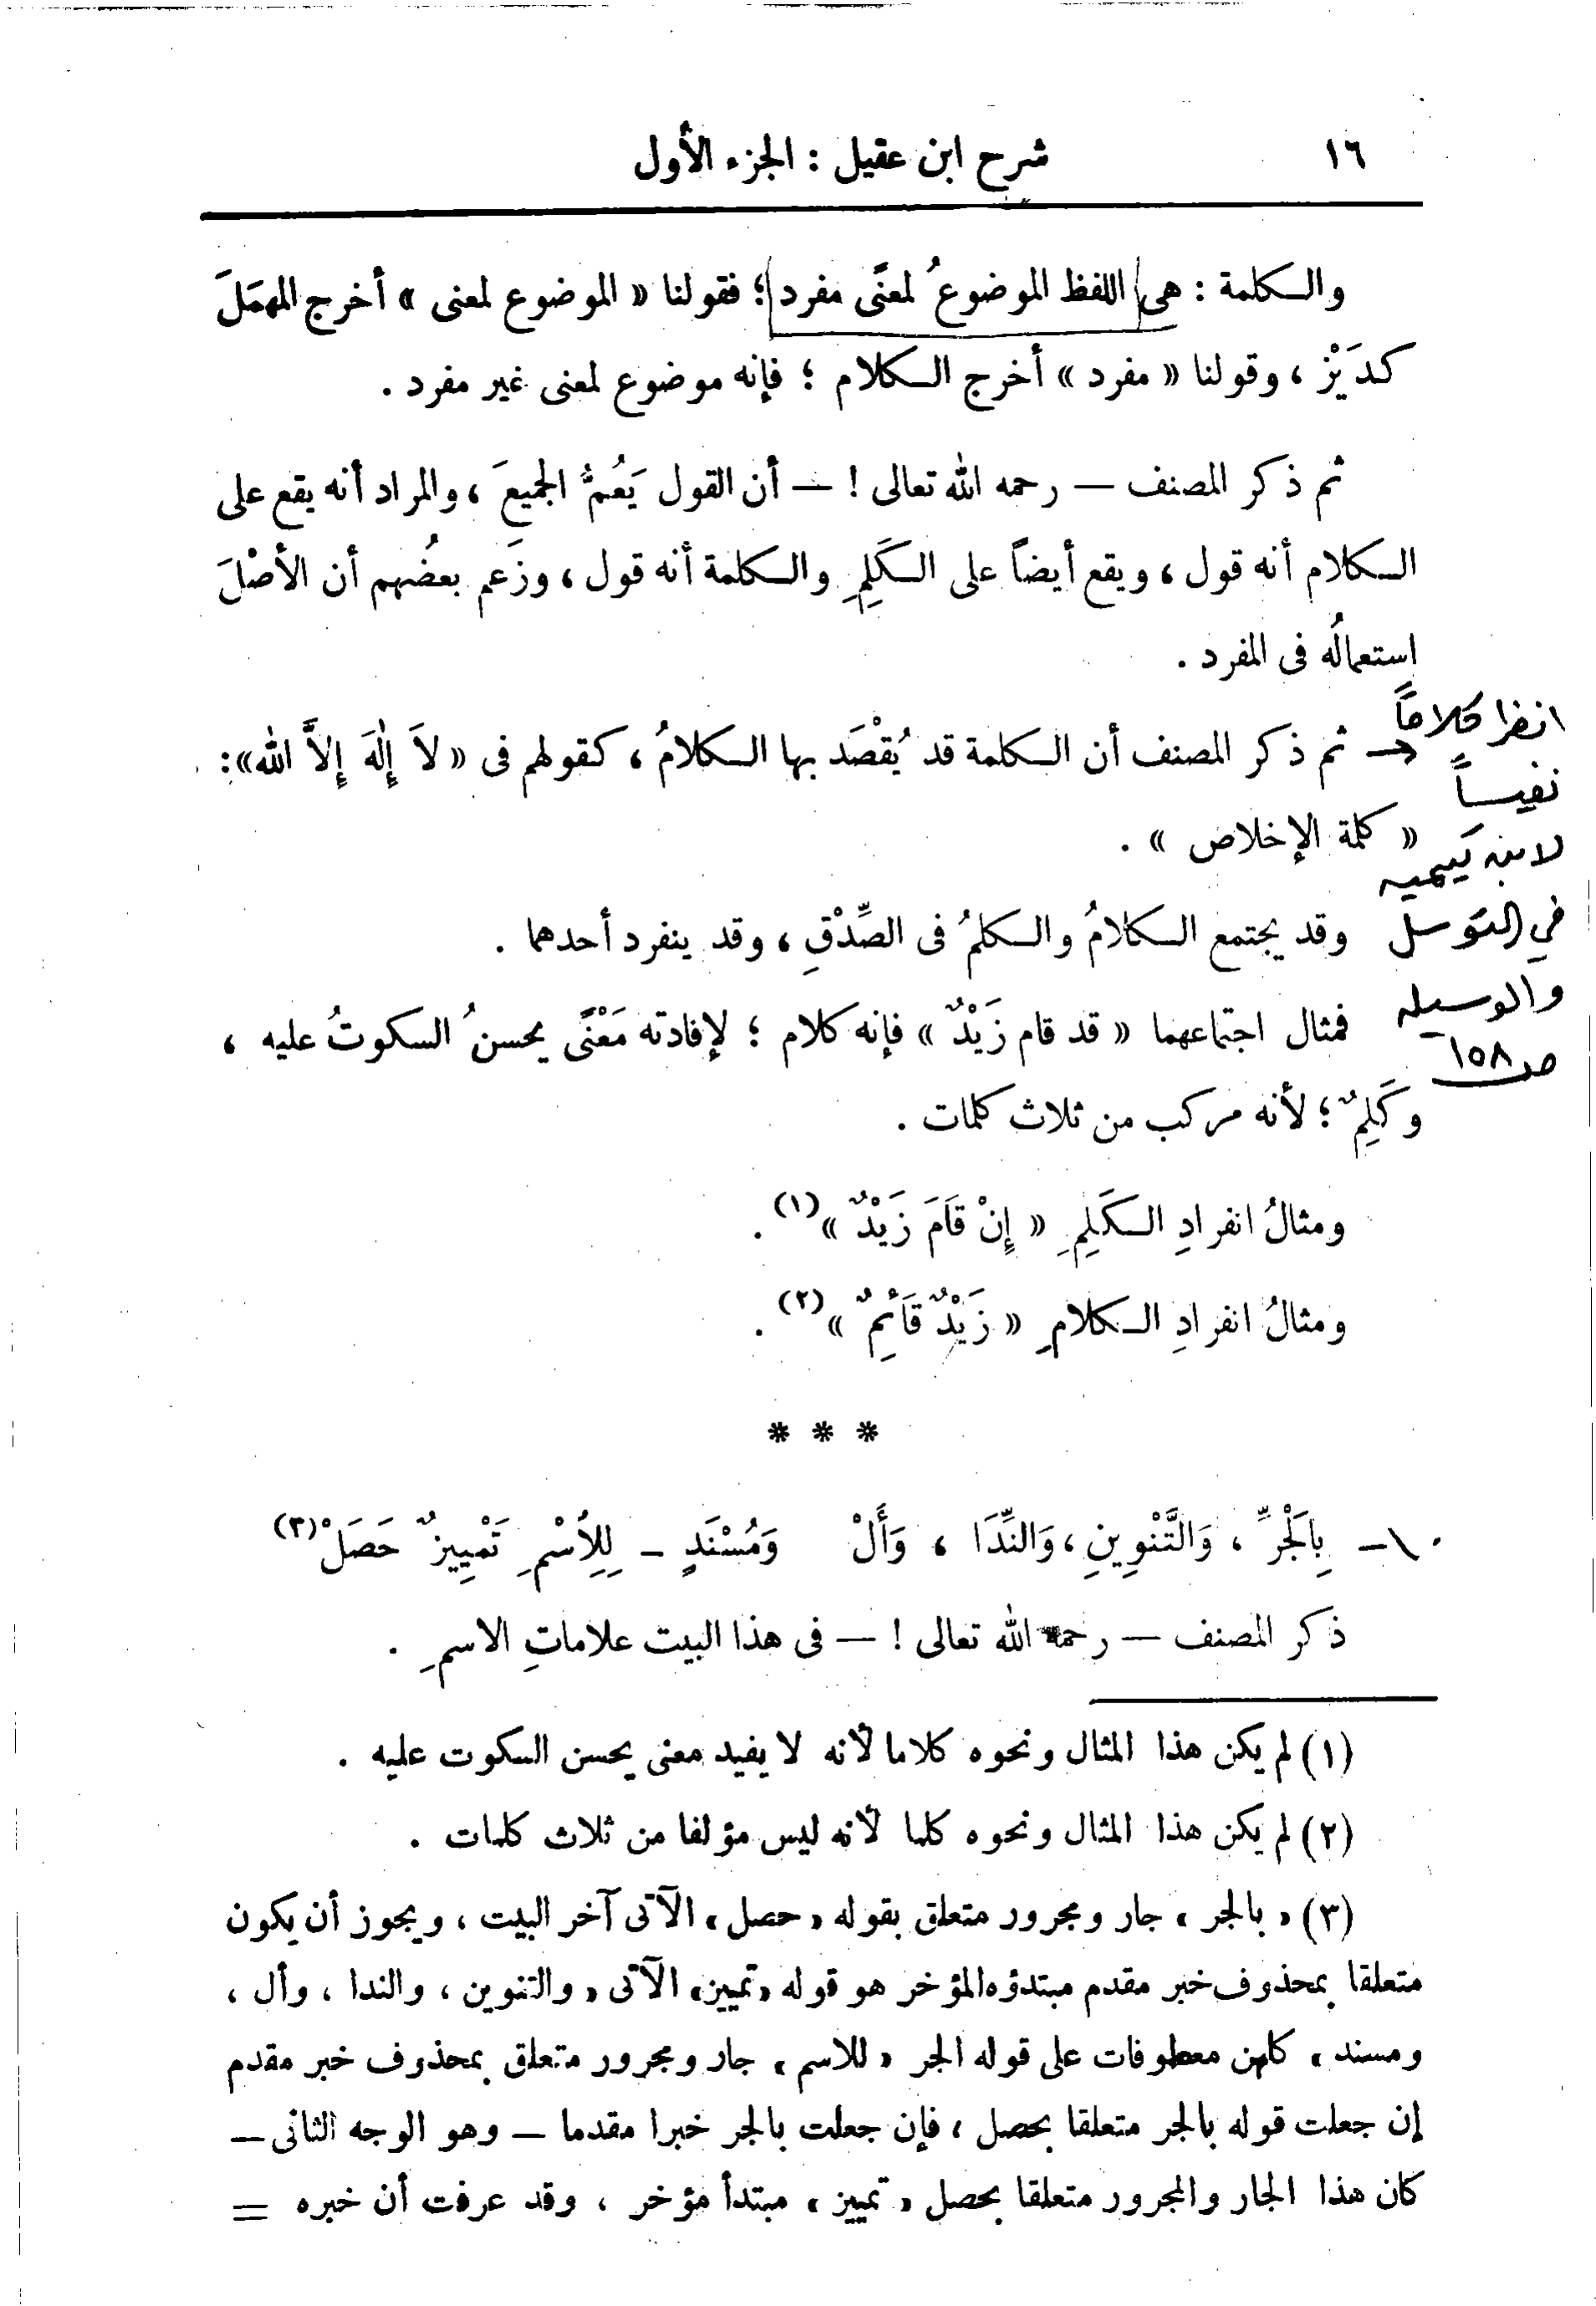 ١٦
شرح ابن عقيل : الجزء الأول
والكلمة : هى اللفظ الموضوعُ لمعنًى مفرد ؛ فقولنا « الموضوع لمعنى » أخرج المهمَلَ
كدَيْزٍ ، وقولنا « مفرد » أخرج الكلام ؛ فإنه موضوع لمعنى غير مفرد .
ثم ذكر المصنف — رحمه الله تعالى ! — أن القول يَعُمُّ الجميعَ ، والمراد أنه يقع على
الكلام أنه قول ، ويقع أيضاً على الكَلِمِ والكلمة أنه قول ، وزَعم بعضُهم أن الأصْلَ
استعمالُه فى المفرد .
ثم ذكر المصنف أن الكلمة قد يُقْصَد بها الكلامُ ، كقولهم فى « لاَ إِلٰهَ إِلاَّ الله » :
« كلمة الإخلاص » .
وقد يجتمع الكلامُ والكلمُ فى الصِّدْقِ ، وقد ينفرد أحدهما .
فمثال اجتماعهما « قد قام زَيْدٌ » فإنه كلام ؛ لإفادته مَعْنًى يحسنُ السكوتُ عليه ،
وكَلِمٌ ؛ لأنه مركب من ثلاث كلمات .
ومثالُ انفرادِ الكَلِمِ « إِنْ قَامَ زَيْدٌ »(١) .
ومثالُ انفرادِ الكلامِ « زَيْدٌ قَائِمٌ »(٢) .
انظر كلاماً
نفيساً
لابن تيمية
في التوسل
والوسيله
ص ١٥٨
* * *
١٠ – بِالْجَرِّ ، وَالتَّنْوِينِ ، وَالنِّدَا ، وَأَلْ وَمُسْنَدٍ – لِلِاسْمِ تَمْيِيزٌ حَصَلْ(٣)
ذكر المصنف — رحمه الله تعالى ! — فى هذا البيت علاماتِ الاسمِ .
(١) لم يكن هذا المثال ونحوه كلاما لأنه لا يفيد معنى يحسن السكوت عليه .
(٢) لم يكن هذا المثال ونحوه كلما لأنه ليس مؤلفا من ثلاث كلمات .
(٣) « بالجر » جار ومجرور متعلق بقوله « حصل » الآتى آخر البيت ، ويجوز أن يكون
متعلقا بمحذوف خبر مقدم مبتدؤه المؤخر هو قوله « تمييز » الآتى « والتنوين ، والندا ، وأل ،
ومسند » كلهن معطوفات على قوله الجر « للاسم » جار ومجرور متعلق بمحذوف خبر مقدم
إن جعلت قوله بالجر متعلقا بحصل ، فإن جعلت بالجر خبرا مقدما — وهو الوجه الثانى —
كان هذا الجار والمجرور متعلقا بحصل « تمييز » مبتدأ مؤخر ، وقد عرفت أن خبره =